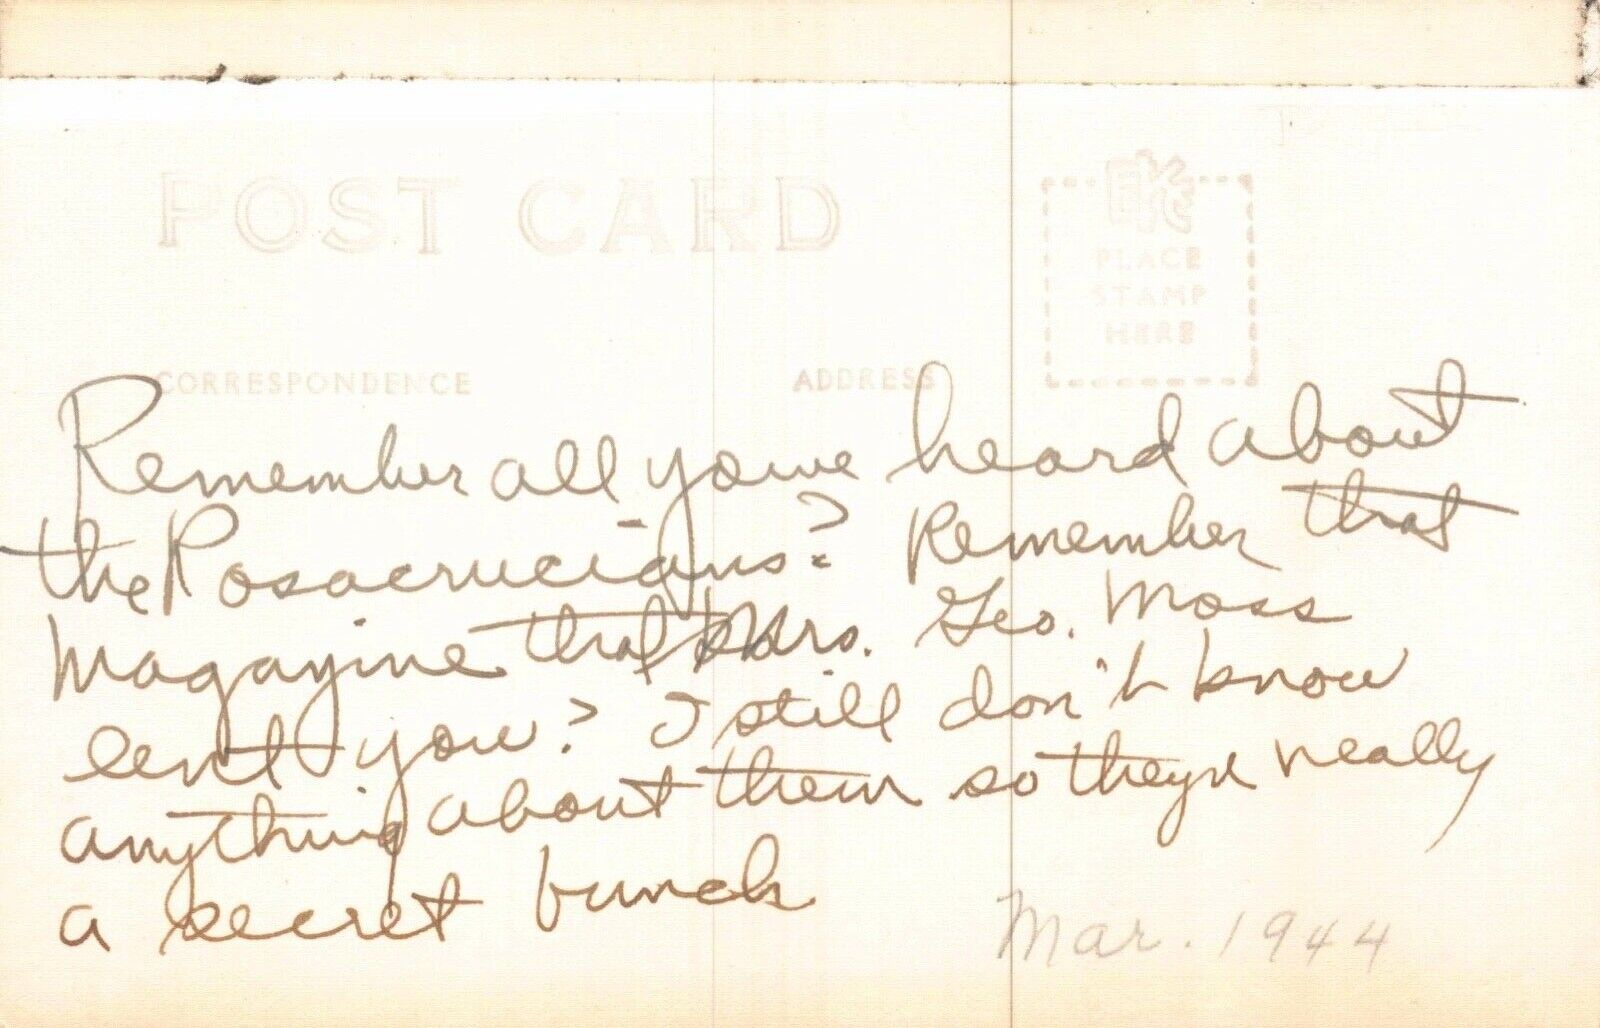 POST CARD
EKC
PLACE
STAMP
HERE
CORRESPONDENCE
ADDRESS
Remember all youve heard about
the Rosacrucians? Remember that
magazine that Mrs. Geo. Moss
sent you? I still don't know
anything about them so they're really
a secret bunch
Mar. 1944